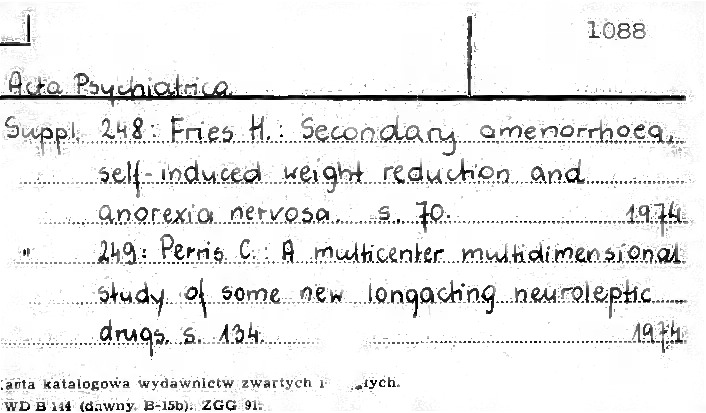 1088
Acta Psychiatrica
Suppl. 248: Fries H.: Secondary amenorrhoea,
self-induced weight reduction and
anorexia nervosa. s. 70. 1974
" 249: Perris C.: A multicenter multidimensional
study of some new longacting neuroleptic
drugs. s. 134. 1974
arta katalogowa wydawnictw zwartych i
WD B 144 (dawny. B-15b). ZGG 91.